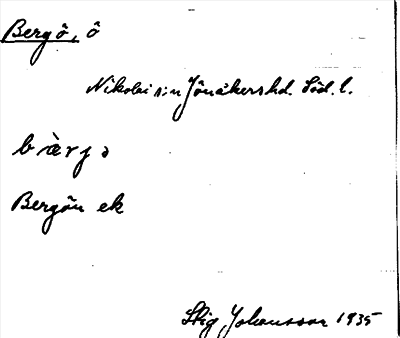 Bergö, ö
Nikolai s:n Jönåkershd. Söd. l.
bàrjə
Bergön ek
Stig Johansson 1935